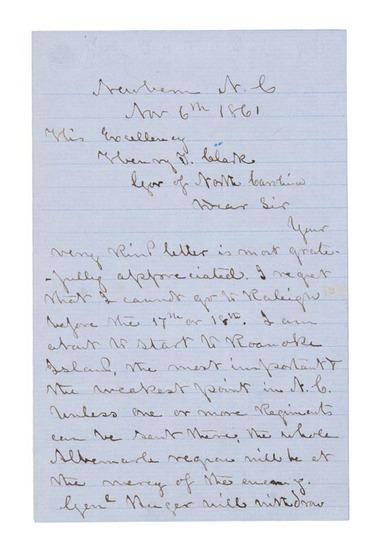 Newbern N. C
Nov 6th 1861
His Excellency
Henry T. Clark
Gov of North Carolina
Dear Sir
Your
very kind letter is most grate-
-fully appreciated. I regret
that I cannot go to Raleigh
before the 17th or 18th. I am
about to start to Roanoke
Island, the most important &
the weakest point in N. C.
Unless one or more Regiments
can be sent there, the whole
Albemarle region will be at
the mercy of the enemy.
Genl Huger will withdraw